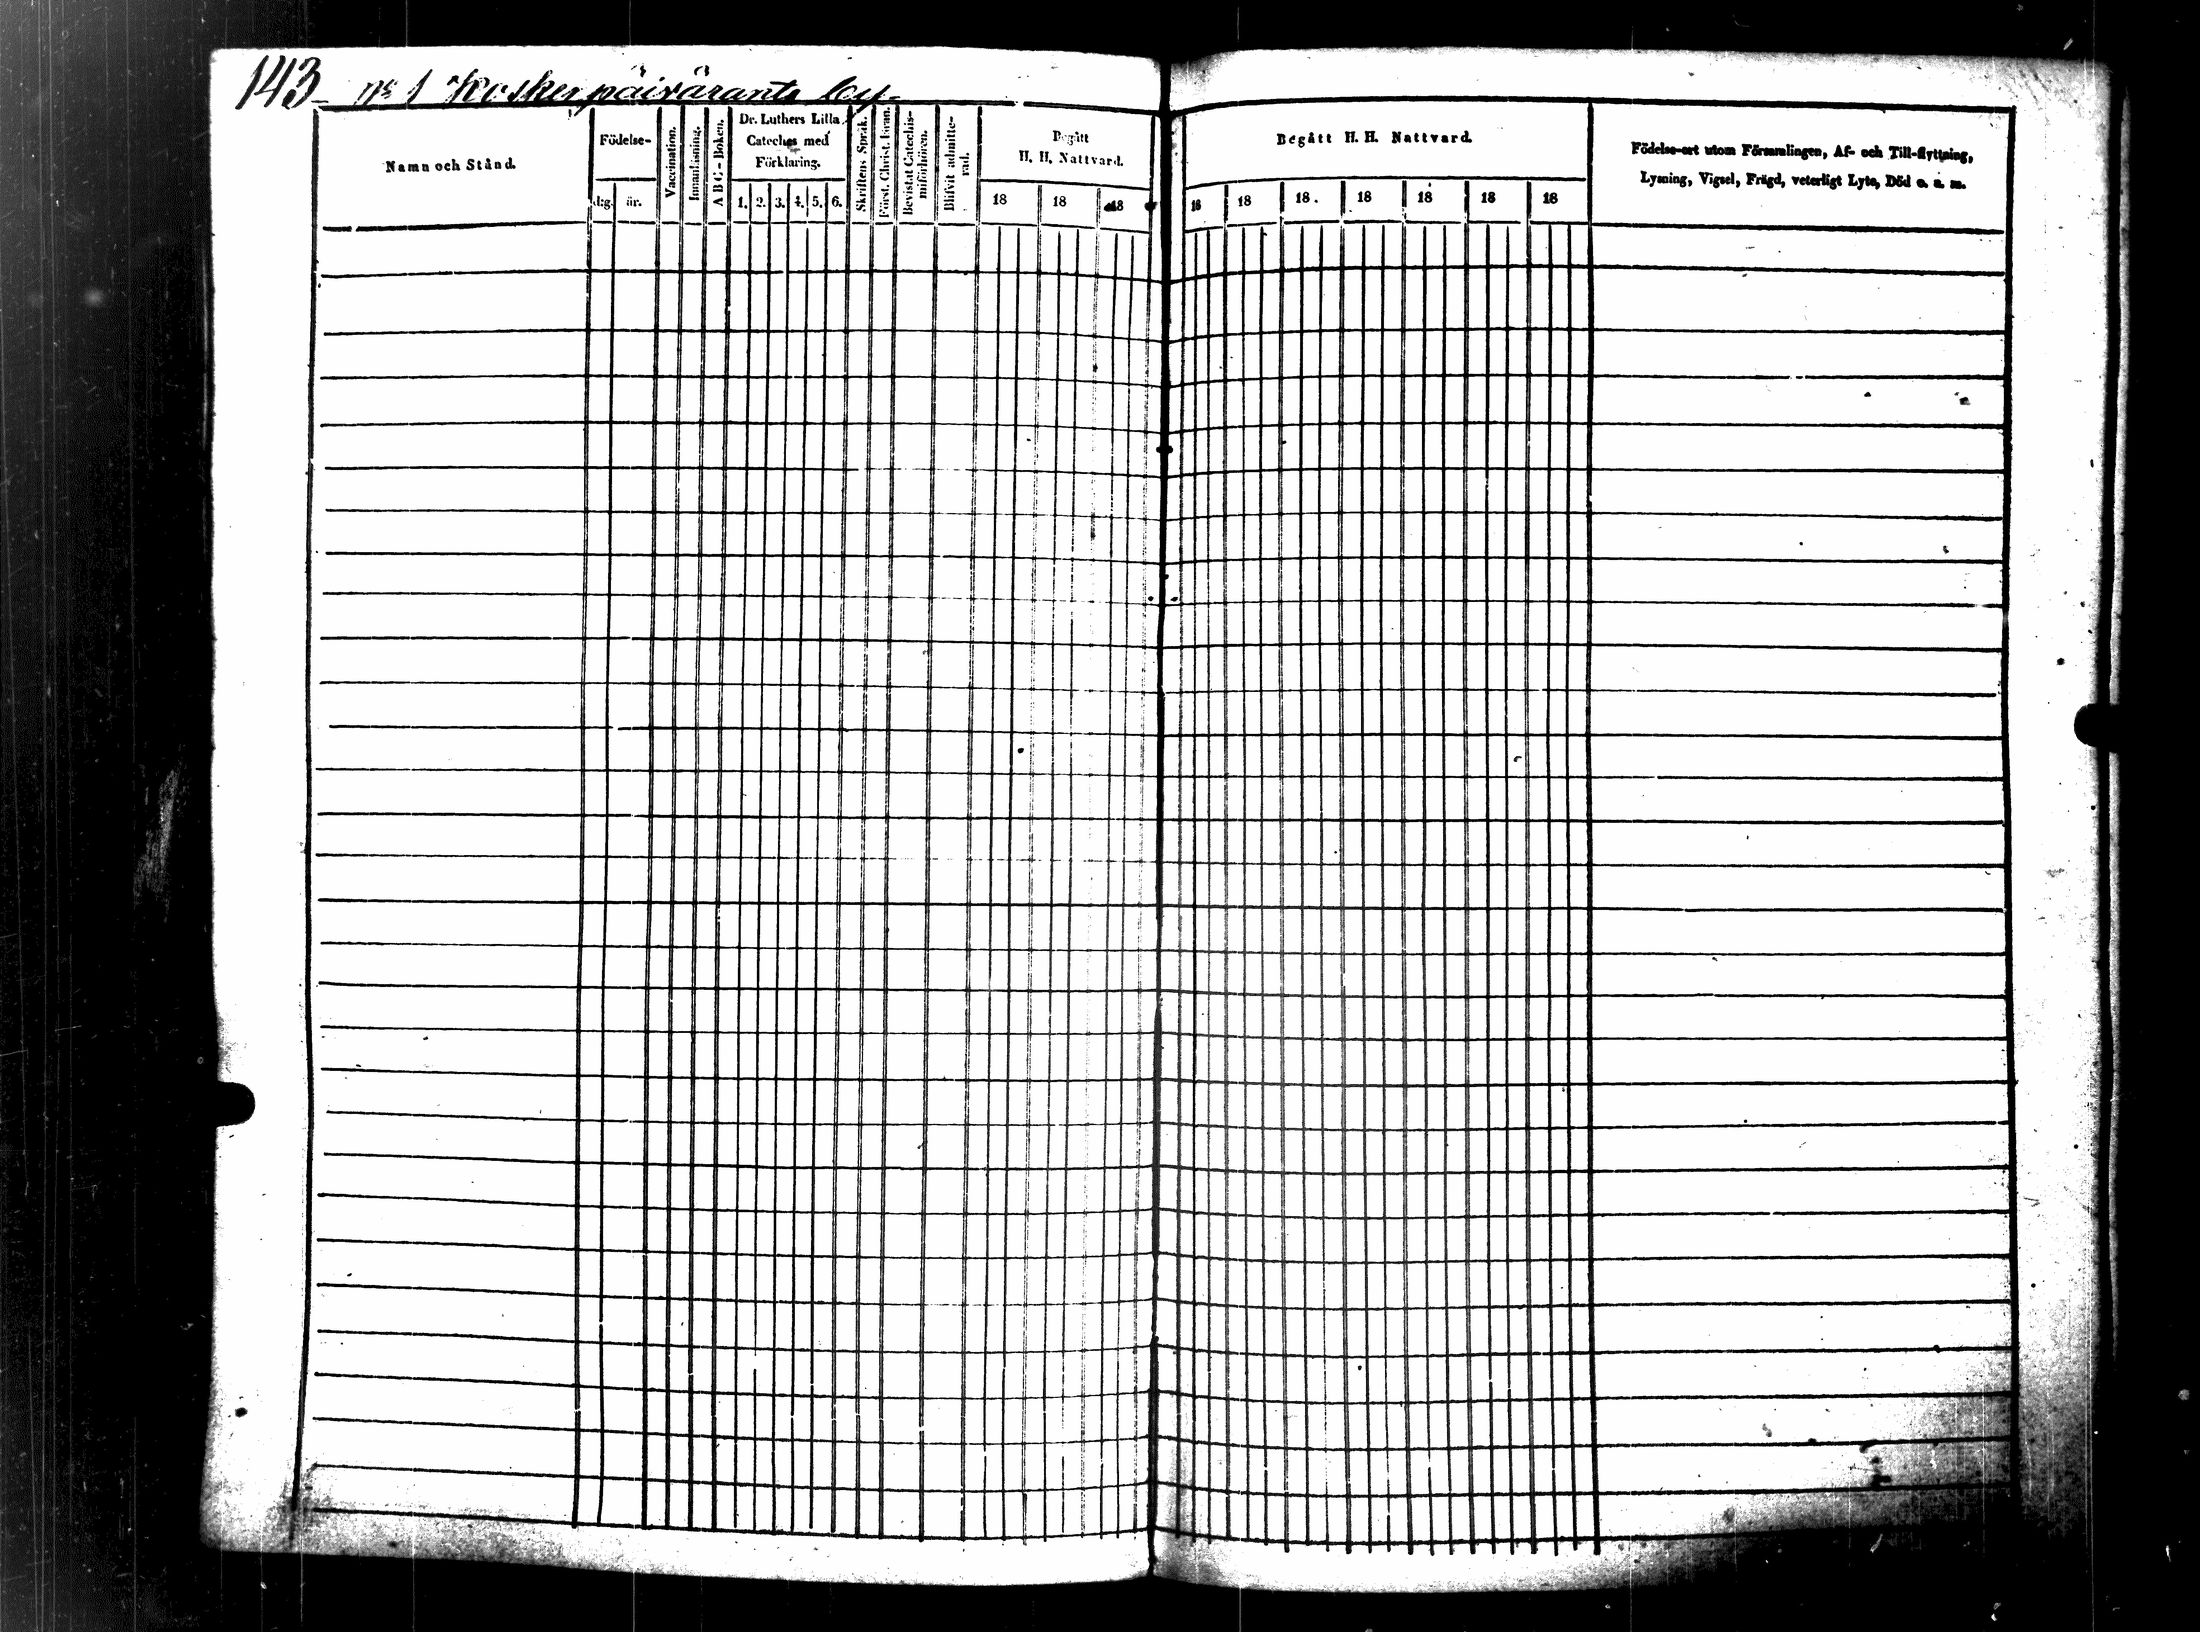 143 No 1 Koskenpäiväranta by
Namn och Stånd.
Födelse-
dag. år.
Vaccination.
Innanläsning.
A B C - Boken.
Dr. Luthers Lilla
Cateches med
Förklaring.
1. 2. 3. 4. 5. 6.
Skriftens Språk.
Först. Christ. Kran.
Bevistat Catechis-
miförhören.
Blifvit admitte-
rad.
Begått
H. H. Nattvard.
18 18 18
Begått H. H. Nattvard.
18 18 18. 18 18 18 18
Födelse-ort utom Församlingen, Af- och Till-flyttning,
Lysning, Vigsel, Frägd, veterligt Lyte, Död o. a. m.